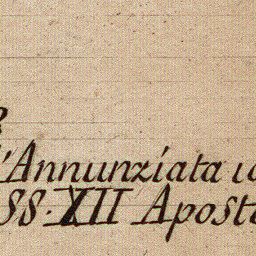 'Annunziata
SS. XII Apost